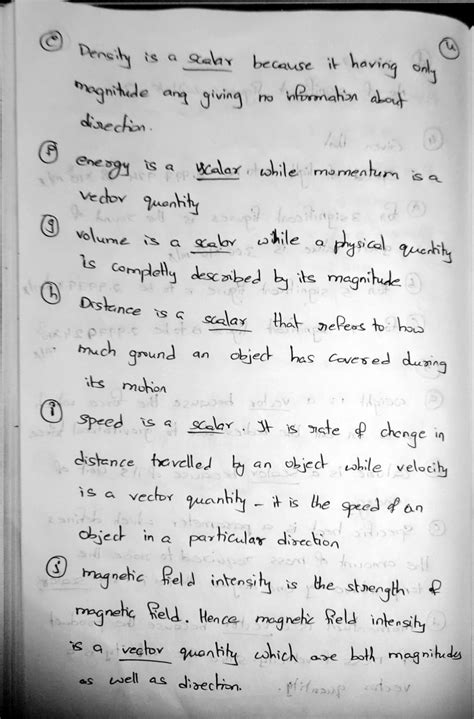 4
(e) Density is a scalar because it having only
magnitude and giving no information about
direction.
(f) energy is a scalar. while momentum is a
vector quantity
(g) volume is a scalar while a physical quantity
is completly described by its magnitude
(h) Distance is a scalar that refers to how
much ground an object has covered during
its motion
(i) Speed is a scalar. It is rate of change in
distance travelled by an object while velocity
is a vector quantity - it is the speed of an
object in a particular direction
(j) magnetic field intensity is the strength of
magnetic field. Hence magnetic field intensity
is a vector quantity which are both magnitudes
as well as direction.